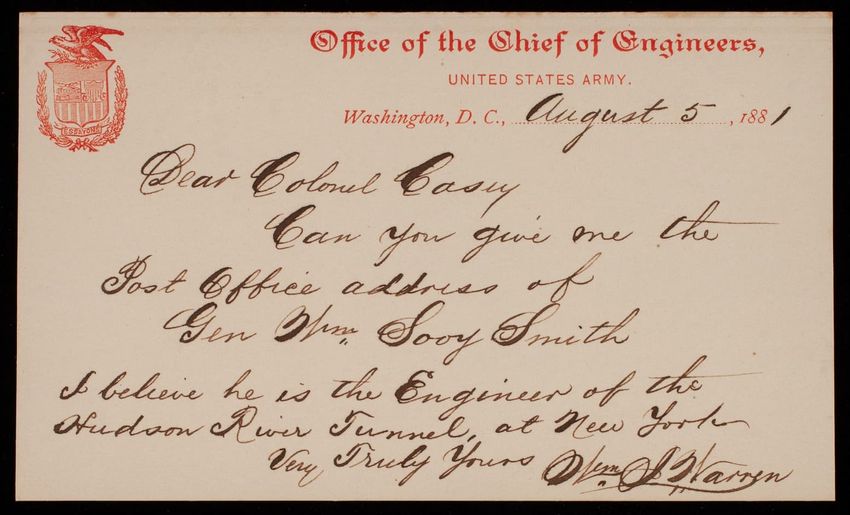 Office of the Chief of Engineers,
UNITED STATES ARMY.
Washington, D. C., August 5, 1881
ESSAYONS
Dear Colonel Casey
Can you give me the
Post Office address of
Gen Wm Sooy Smith
I believe he is the Engineer of the
Hudson River Tunnel, at New York
Very Truly Yours Wm J Warren